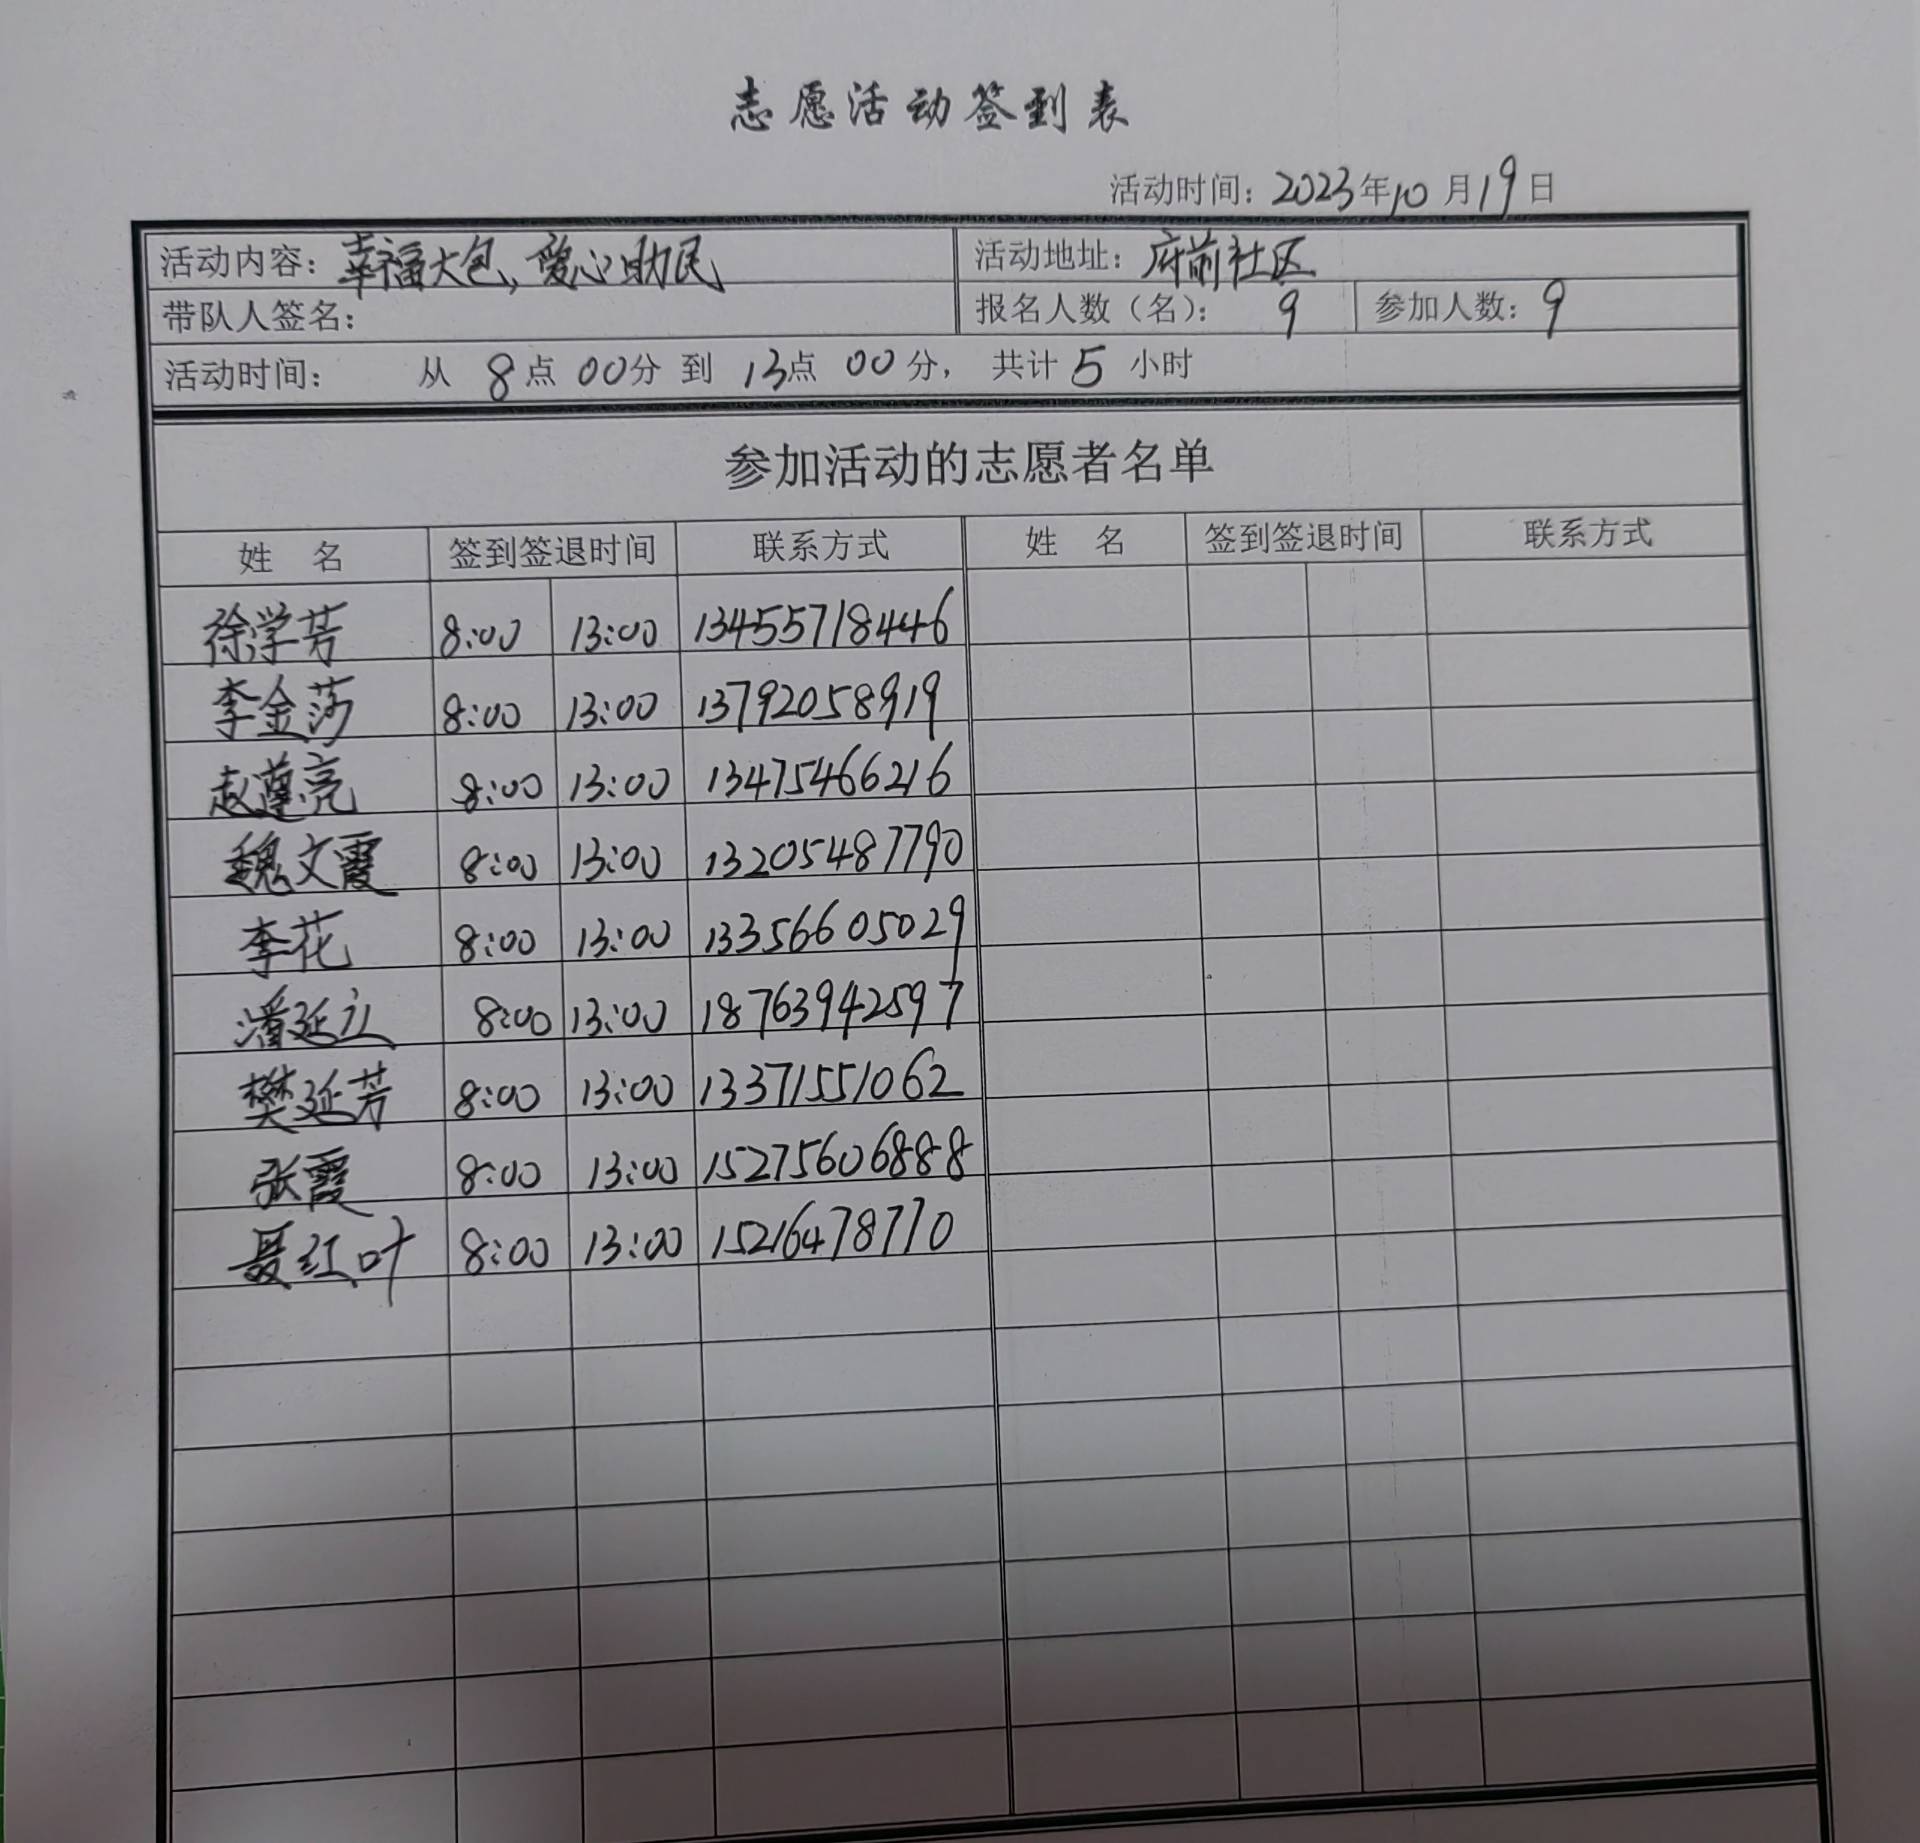 志愿活动签到表
活动时间：2023年10月19日
活动内容：幸福大包，爱心助民 活动地址：府前社区
带队人签名： 报名人数（名）： 9 参加人数：9
活动时间： 从 8点 00分 到 13点 00分， 共计 5 小时
参加活动的志愿者名单
姓 名 签到签退时间 联系方式 姓 名 签到签退时间 联系方式
徐学芳 8:00 13:00 13455718446
李金莎 8:00 13:00 13792058919
赵莲亮 8:00 13:00 13475466216
魏文霞 8:00 13:00 13205487790
李花 8:00 13:00 13356605029
潘延立 8:00 13:00 18763942597
樊延芳 8:00 13:00 13371551062
张霞 8:00 13:00 15275606888
聂红叶 8:00 13:00 15216478770